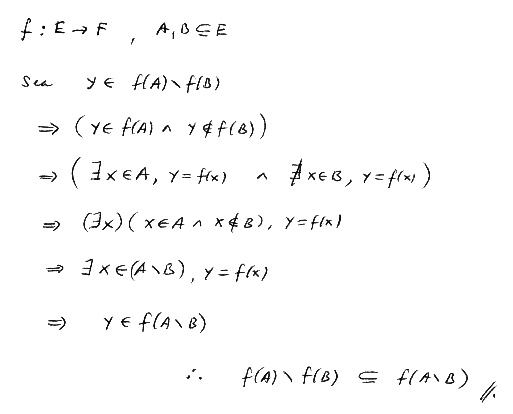 f : E → F , A, B ⊆ E
Sea y ∈ f(A) \ f(B)
⇒ ( y ∈ f(A) ∧ y ∉ f(B) )
⇒ ( ∃ x ∈ A, y = f(x) ∧ ∄ x ∈ B, y = f(x) )
⇒ (∃x) ( x ∈ A ∧ x ∉ B ), y = f(x)
⇒ ∃ x ∈ (A \ B), y = f(x)
⇒ y ∈ f(A \ B)
∴ f(A) \ f(B) ⊆ f(A \ B) //.